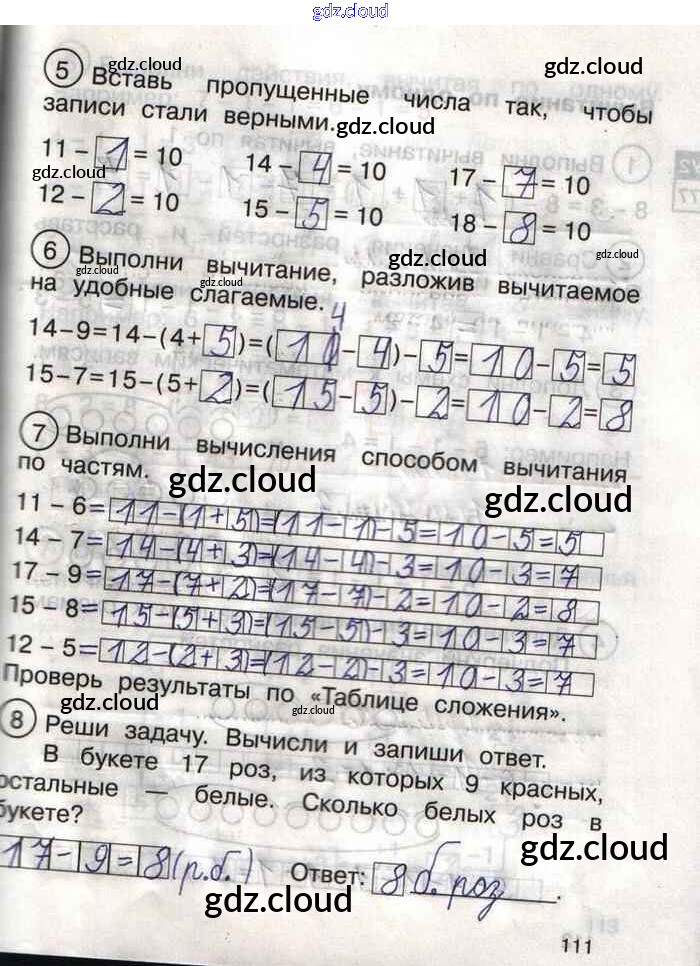 gdz.cloud
5 Вставь пропущенные числа так, чтобы
gdz.cloud gdz.cloud
записи стали верными.
gdz.cloud
11 – 1 = 10 14 – 4 = 10 17 – 7 = 10
gdz.cloud
12 – 2 = 10 15 – 5 = 10 18 – 8 = 10
6 Выполни вычитание, разложив вычитаемое
gdz.cloud gdz.cloud gdz.cloud
на удобные слагаемые.
4
14–9=14–(4+5)=(10–4)–5=10–5=5
15–7=15–(5+2)=(15–5)–2=10–2=8
7 Выполни вычисления способом вычитания
по частям.
gdz.cloud gdz.cloud
11 – 6=11–(1+5)=(11–1)–5=10–5=5
14 – 7=14–(4+3)=(14–4)–3=10–3=7
17 – 9=17–(7+2)=(17–7)–2=10–2=8
15 – 8=15–(5+3)=(15–5)–3=10–3=7
12 – 5=12–(2+3)=(12–2)–3=10–3=7
Проверь результаты по «Таблице сложения».
gdz.cloud gdz.cloud
8 Реши задачу. Вычисли и запиши ответ.
В букете 17 роз, из которых 9 красных,
остальные — белые. Сколько белых роз в
букете?
gdz.cloud
17–9=8(р.б.) Ответ: 8 б. роз.
gdz.cloud
111